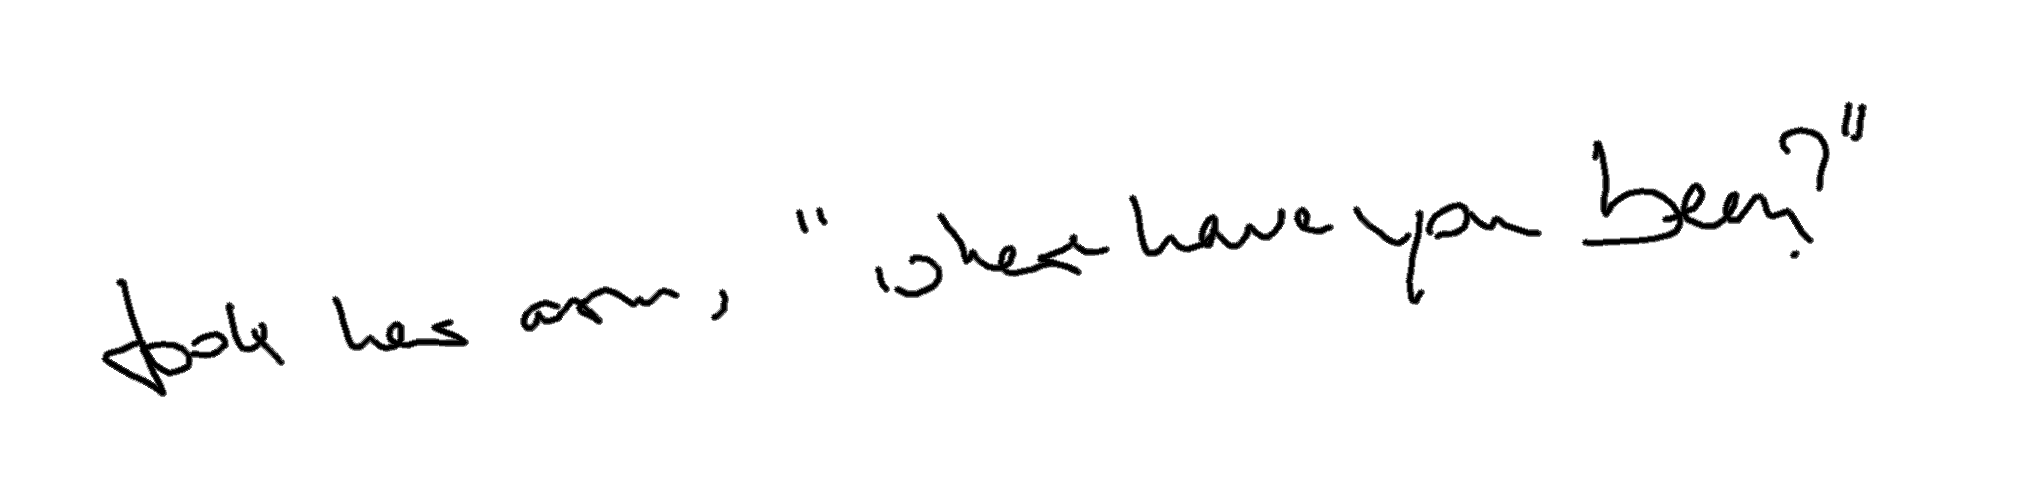 took her arm, "where have you been?"